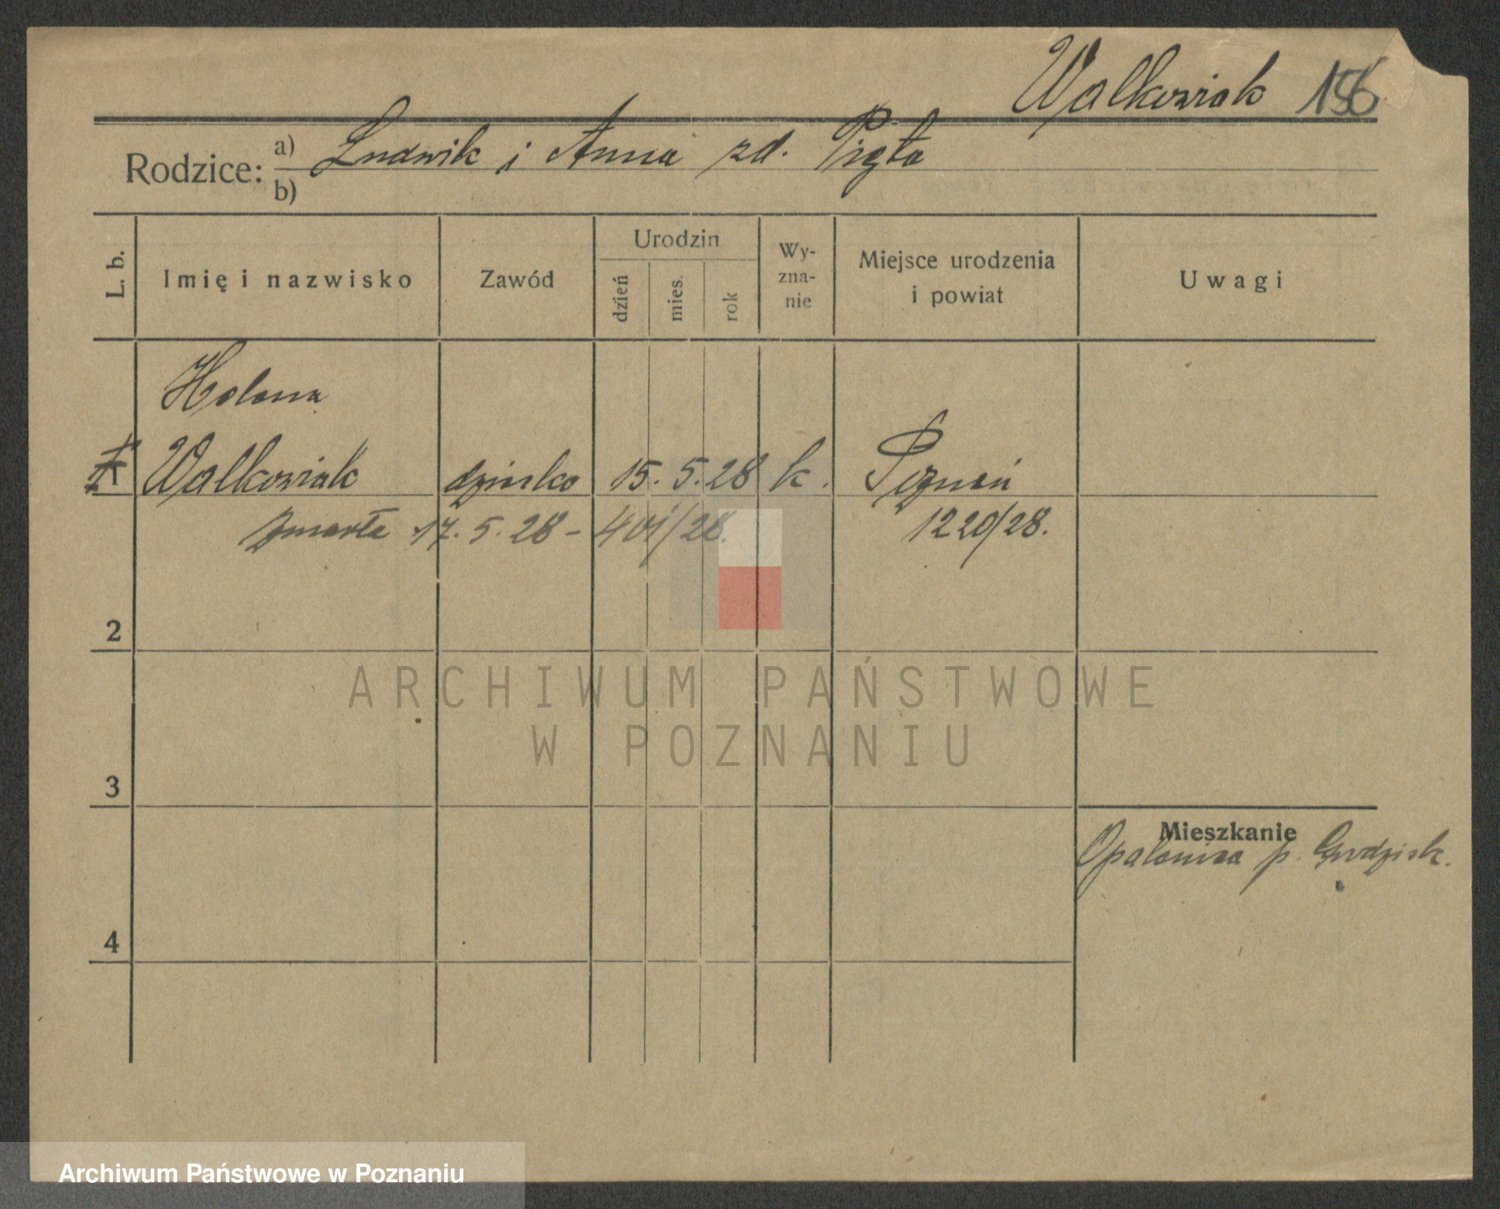 Walkowiak 156
Rodzice: a) Ludwik i Anna zd. Pięta
b)
L. b.
Imię i nazwisko
Zawód
Urodzin
dzień
mies.
rok
Wy-
zna-
nie
Miejsce urodzenia
i powiat
Uwagi
Helena
Walkowiak dziecko 15. 5. 28 k. Poznań
zmarła 17. 5. 28 – 401/28. 1220/28.
2
ARCHIWUM PAŃSTWOWE
W POZNANIU
3
Mieszkanie
Opalenica p. Grodzisk.
4
Archiwum Państwowe w Poznaniu